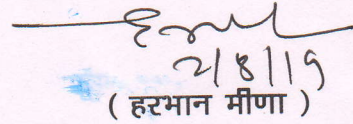 2/8/19
( हरभान मीणा )